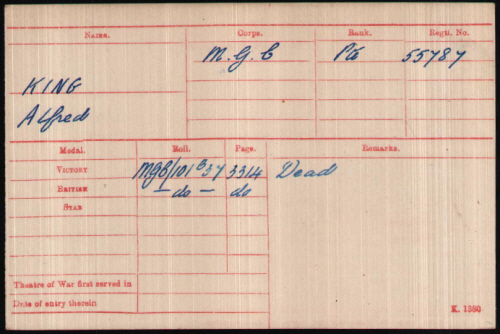 Name. Corps. Rank. Regtl. No.
M.G.C Pte 55787
KING
Alfred
Medal. Roll. Page. Remarks.
VICTORY MGC/101B37 3314 Dead
BRITISH — do — do
STAR
Theatre of War first served in
Date of entry therein
K. 1380